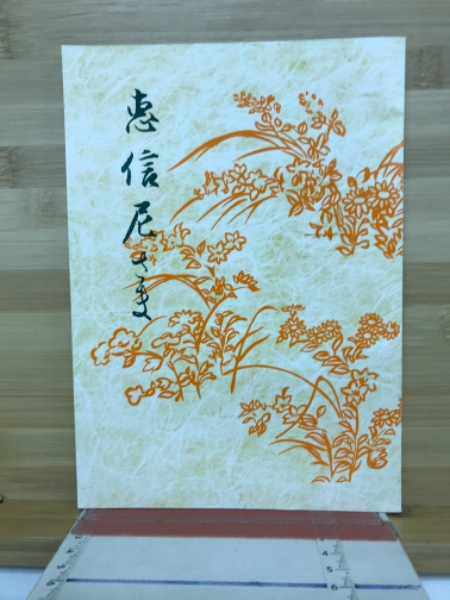 恵信尼さま